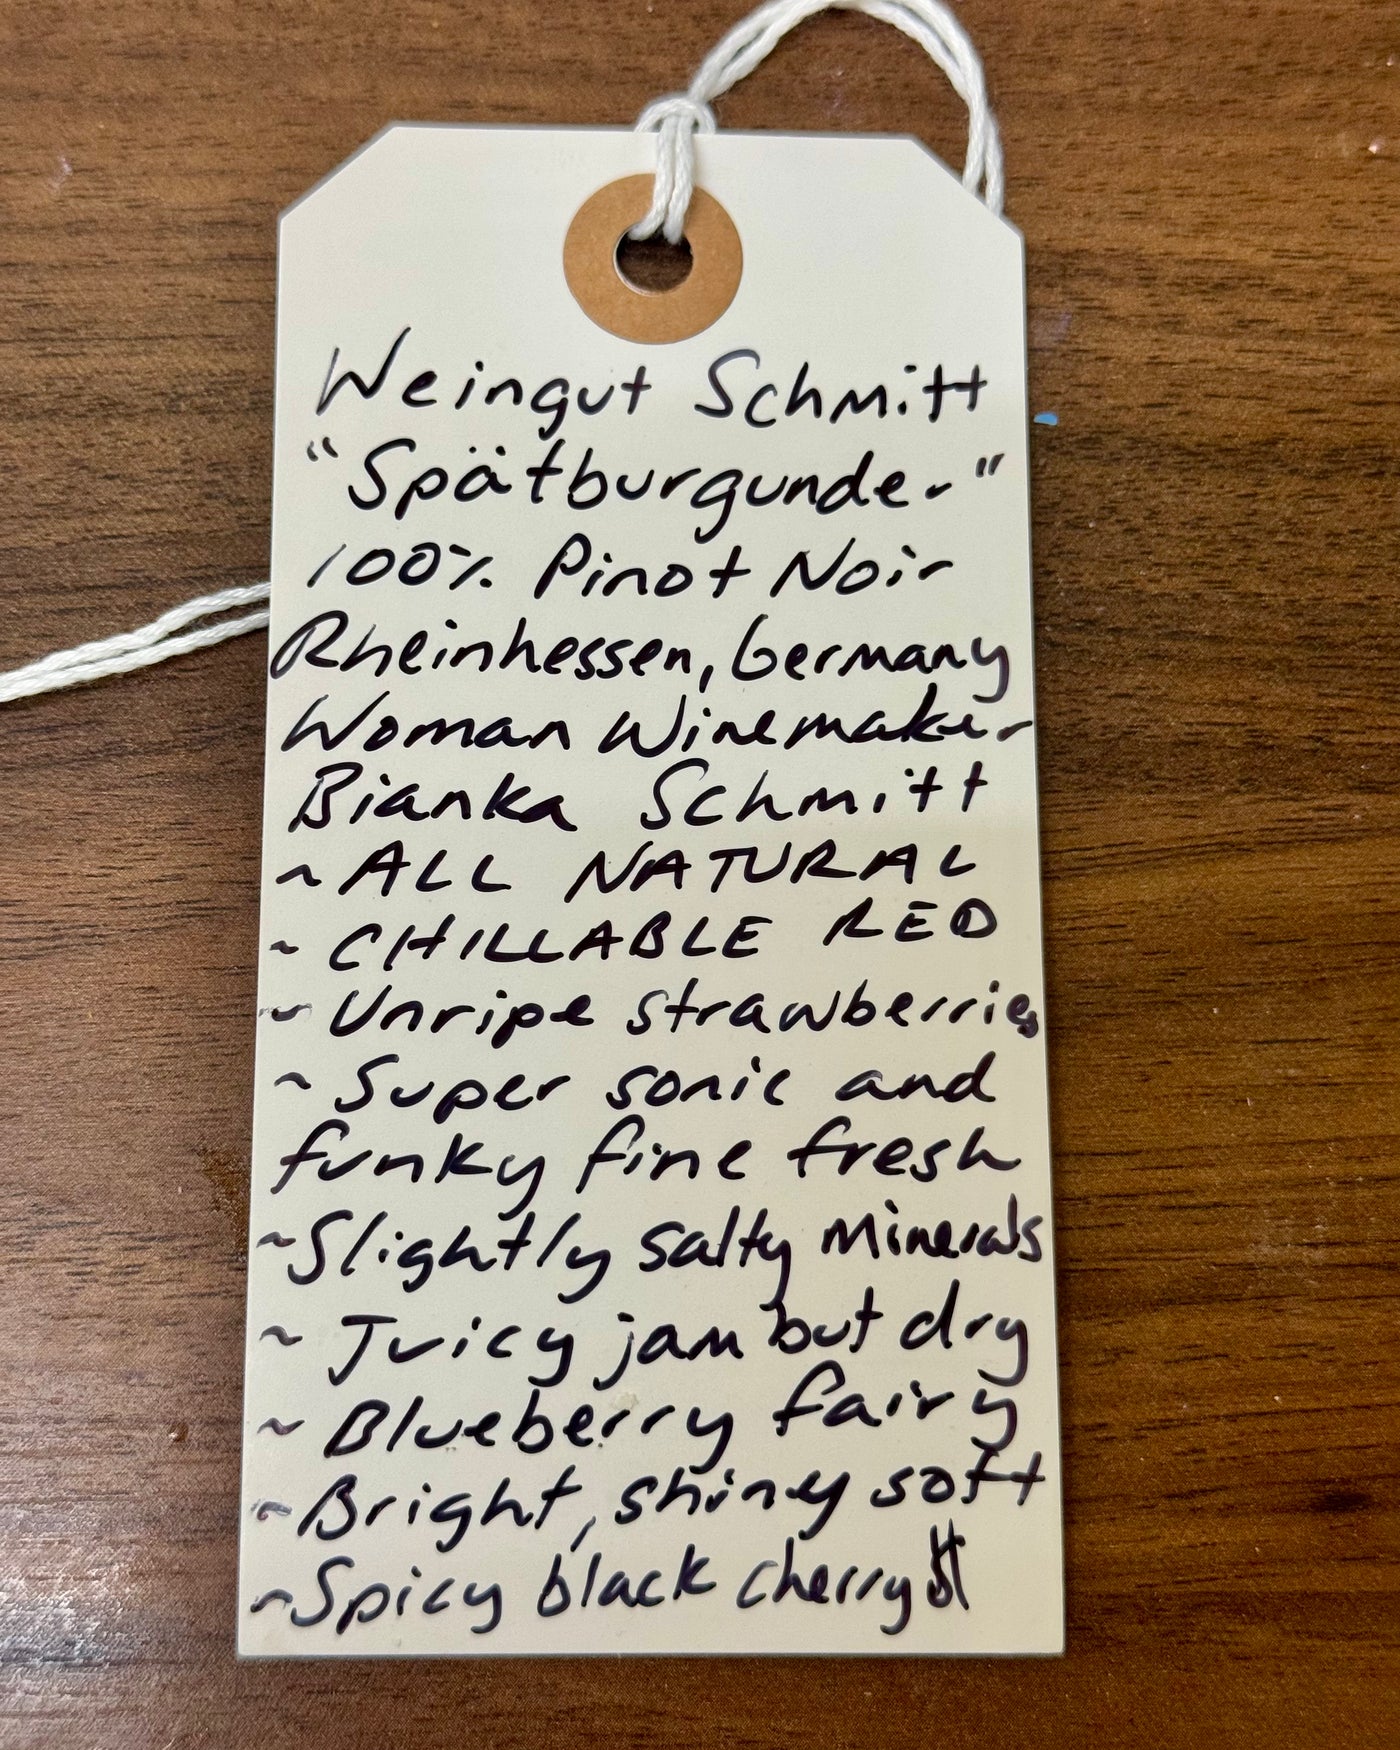 Weingut Schmitt
"Spätburgunder"
100% Pinot Noir
Rheinhessen, Germany
Woman Winemaker
Bianka Schmitt
~ ALL NATURAL
~ CHILLABLE RED
~ Unripe strawberries
~ Super sonic and
funky fine fresh
~ Slightly salty minerals
~ Juicy jam but dry
~ Blueberry fairy
~ Bright, shiny soft
~ Spicy black cherry